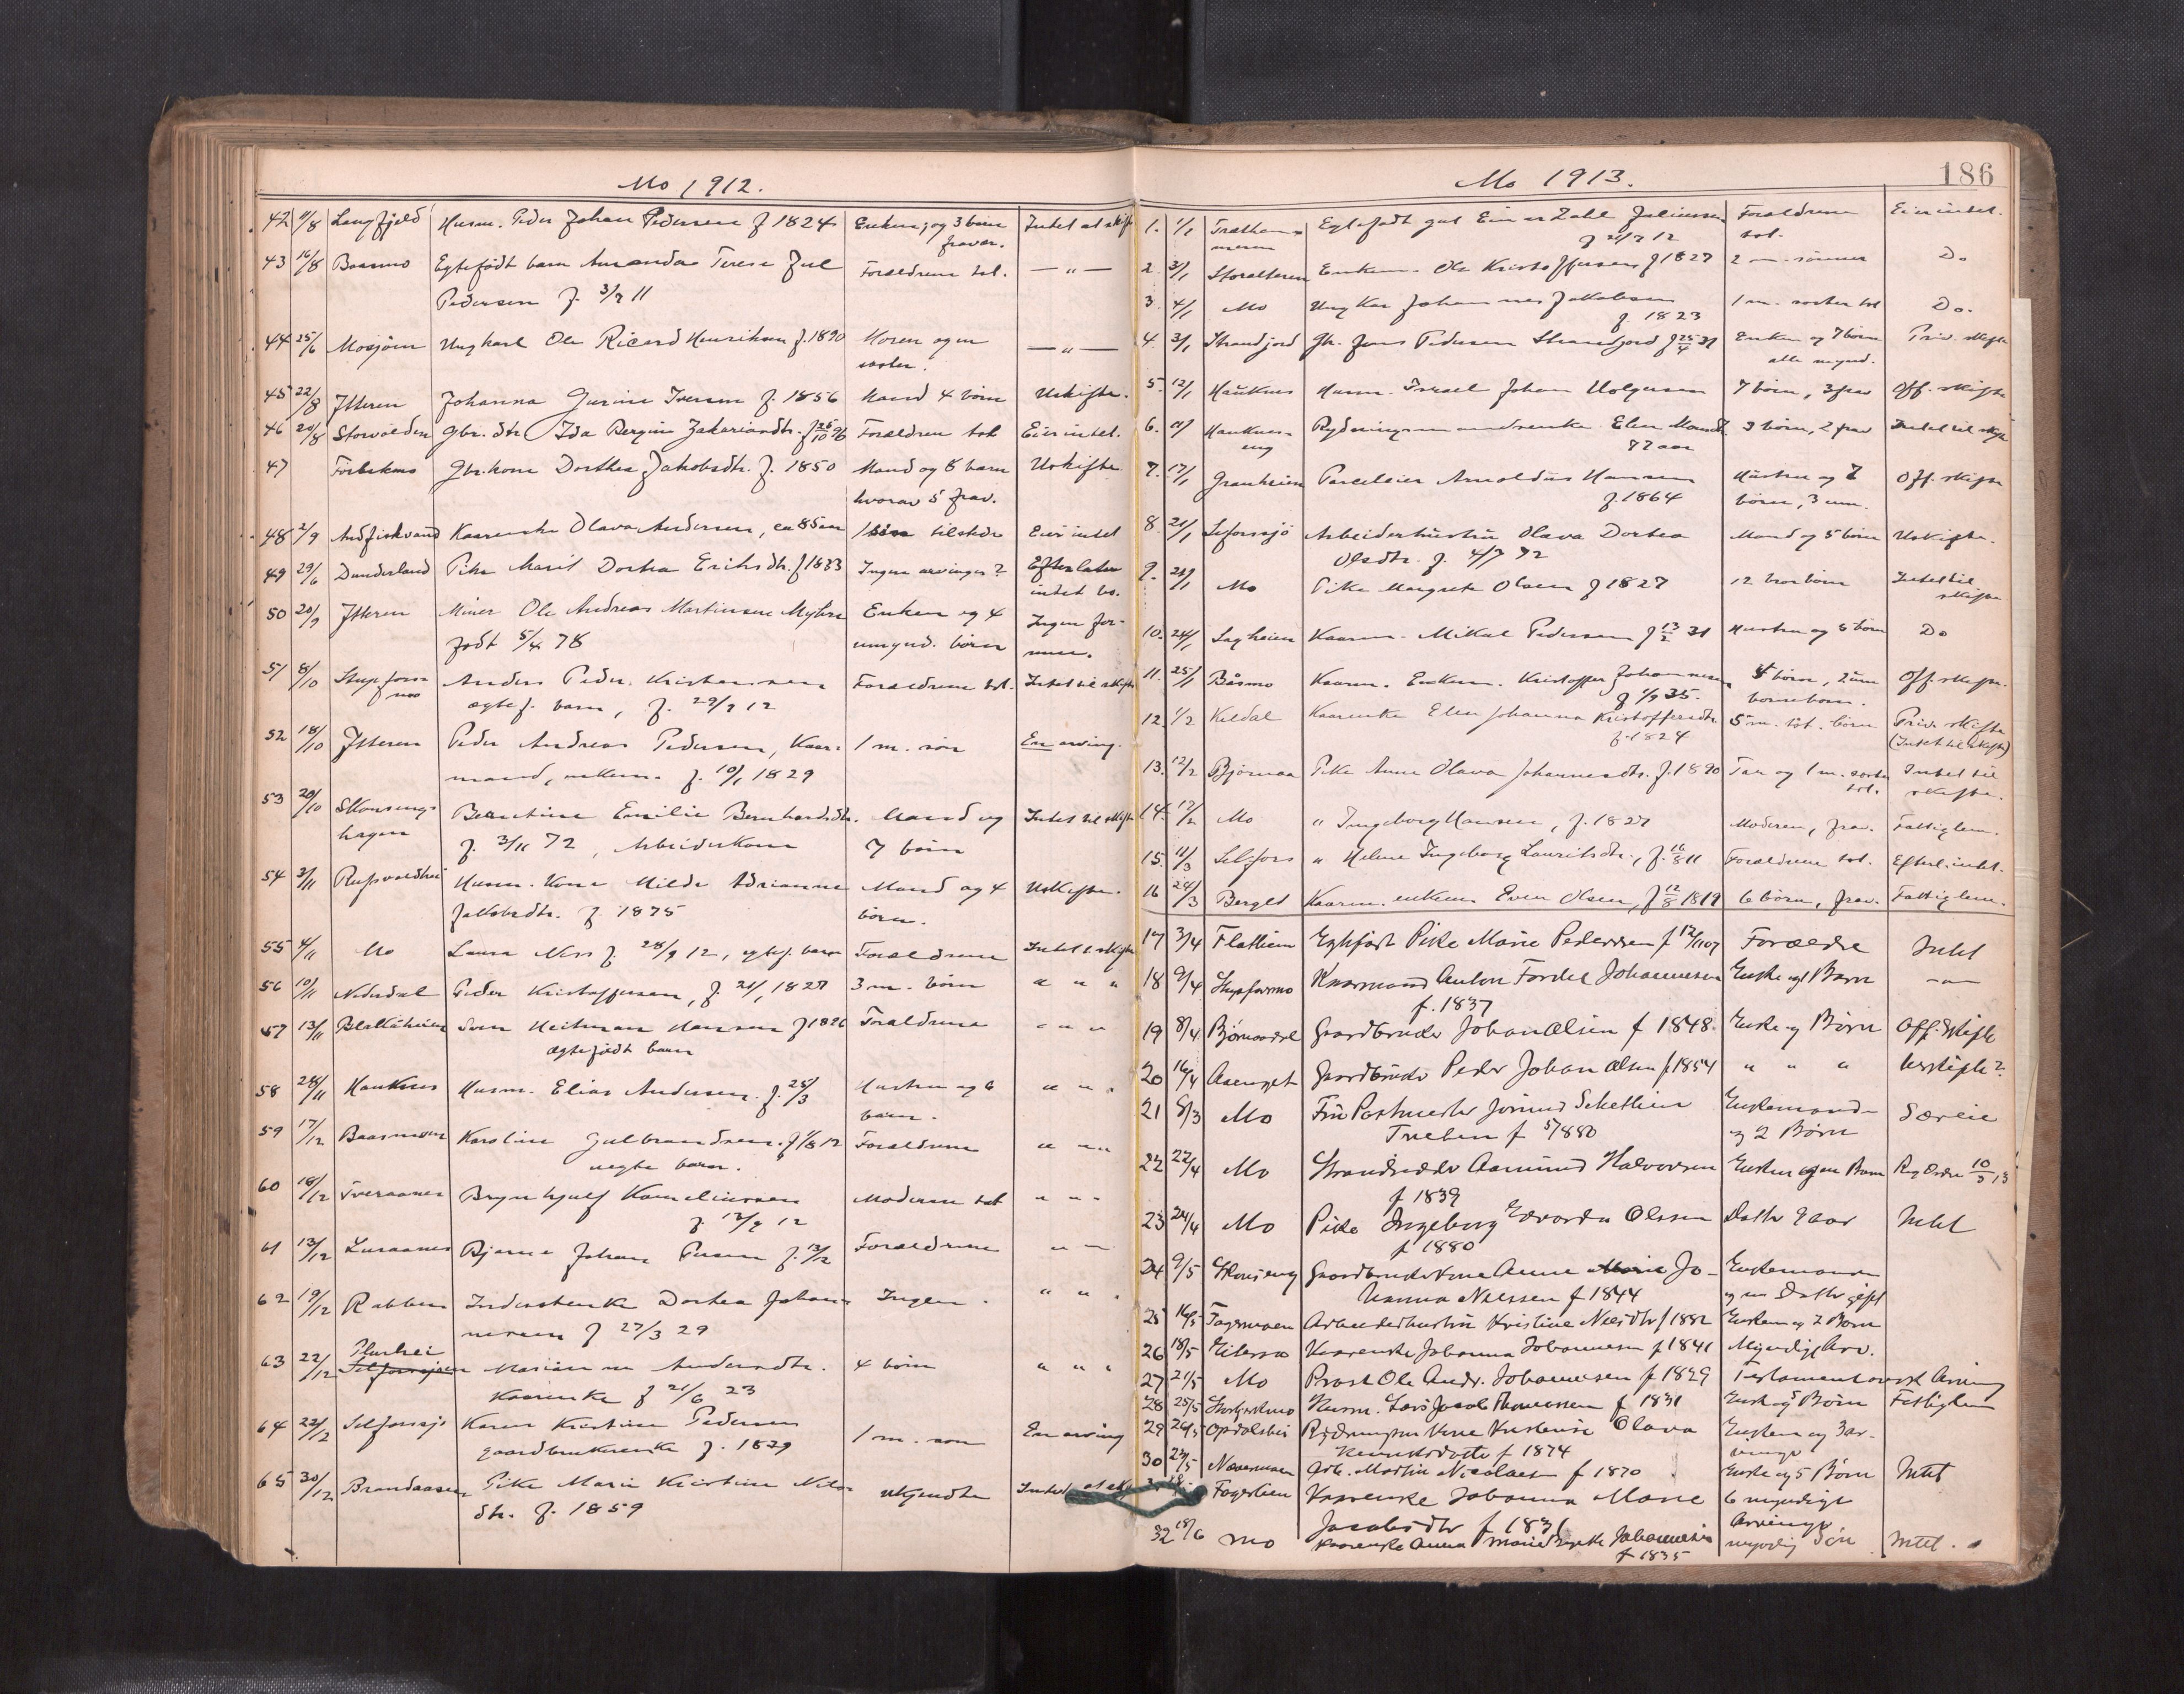 Mo 1912.
42 11/8 Langfjeld Husm. Peder Johan Pedersen f 1824 Enken og 3 børn Intet at skifte
fravær.
43 16/8 Baasmo Egtefødt barn Amanda Terese Jul Forældrene tol. — " —
Pedersen f. 3/7 11
44 25/6 Mosjøen Ungkarl Ole Ricard Henriksen f. 1890 Moren og en — " —
søster.
45 22/8 Ytteren Johanna Gurine Iversen f. 1856 Mand 4 børn Uskifte.
46 20/8 Storvolden Gbr. dtr Ida Bergine Zakariasdtr. f 26/10 96 Forældren tol Eier intet.
47 Gbr.kone Dorthea Jakobsdtr. f. 1850 Mand og 8 børn Uskifte
hvorav 5 frav.
48 2/9 Andfiskvand Kaarenke Olava Andersen, ca 85 aar tilstede Eier intet
49 29/6 Dunderland Pike Marit Dortea Eriksdtr. f 1833 Ingen arvinger? Efterlater
intet bo.
50 20/9 Ytteren Miner Ole Andreas Martinsen Myhre Enken og 4 Ingen for-
født 5/4 78 umynd. børn mue.
51 8/10 Stupfors Anders Peder Kristiansen Forældrene tol. Intet til skifte
moo egtef. barn, f. 29/7 12
52 18/10 Ytteren Peder Andreas Pedersen, Kaar- 1 m. søn En arving.
mand, enkem. f. 10/1 1829
53 20/10 Skonsengs Berntine Emilie Bernhardsdtr. Mand og Intet til skifte
hagen f. 3/11 72, Arbeiderkone 7 børn
54 3/11 Husm. Kone Milda Adrianne Mand og 4 Uskifte.
Jakobsdtr. f 1875 børn.
55 4/11 Mo Laura Ness f. 28/9 12, egtef. barn Forældrene Intet t. skifte
56 10/11 Nederdal Peder Kristoffersen, f. 21/1 1827 3 m. børn " " "
57 13/11 Sven Heitman Hansen Forældrene " " "
egtefødt barn
58 28/11 Hauknes Husm. Elias Andersen. f. 25/3 Hustru og 6 " " "
børn.
59 17/12 Baasmoen Karoline Gulbrandsen. f 1/8 12 Forældrene " " "
uegte barn.
60 18/12 Tveraanes Brynhjulf Korneliussen Moderen tol " " "
f. 12/9 12
61 13/12 Luraanes Bjarne Johan f. 13/12 Forældrene " —
62 19/12 Rabben Inderstenke Dortea Johan- Ingen. " " "
nesen f 27/3 29
63 22/12 Plurhei Marianne Andersdtr. 4 børn " " "
Kaarenke f 21/6 23
64 22/12 Selforssjø Karen Kristine Pedersen 1 m. søn En arving
gaardbrukerenke f. 1829
65 30/12 Brandaasen Pike Marie Kristine Nils- ukjendte Intet at
dtr. f. 1859
Mo 1913.
186
1. 1/1 Egtefødt gut Einar Zahl Juliussen Forældrene Eier intet.
f 21/7 12 tol.
2. 3/1 Storalteren Enkem. Ole Kristoffersen f 1827 2 m. sønner Do
3. 4/1 Mo Ungkar Johannes Jakobsen 1 m. søster tol Do.
f. 1823
4. 3/1 Strandjord Gbr. Jens Pedersen Strandjord f 25/4 31 Enken og 7 børn Priv. skifte
alle mynd.
5. 12/1 Hauknes Husm. Israel Johan Holgersen 7 børn, 3 frav Off. skifte
6. Hauknes- Rydningsmandsenke Elen 3 børn, 2 frav Intet til skifte
eng 72 aar
7. 17/1 Granheien Parceleier Arnoldus Hansen Hustru og 7 Off. skifte
f. 1864 børn, 3 um.
8. 21/1 Selforssjø Arbeiderhustru Olava Dortea Mand og 5 børn Uskifte.
Olsdtr. f. 4/7 72
9. 21/1 Mo Pike Margrete Olsen f 1827 12 Intet til
skifte
10. 24/1 Lagheien Kaarm. Mikal Pedersen f 13/2 31 Hustru og 5 børn Do
11. 25/1 Båsmo Kaarm. Enkem. Kristoffer Johannesen børn, 2 um Off. skifte.
f 1/9 35. børnebørn.
12. 1/2 Kildal Kaarenke Elen Johanna Kristoffersdtr. 5 m. tol. børn Priv. skifte
f. 1824 (Intet til skifte)
13. 12/2 Bjørnaa Pike Anne Olava Johannesdtr. f. 1890 Far og 1 m. søster Intet til
tol. skifte.
14. 17/2 Mo " Ingeborg Hansen, f. 1827 Moderen, frav. Fattiglem.
15 11/3 Selfors " Helene Ingeborg Lauritsdtr., f. 16/8 11 Forældrene tol. Efterl. intet.
16 24/3 Berget Kaarm. enkem. Even Olsen, f 12/8 1819 6 børn, frav. Fattiglem.
17 3/4 Flatheim Egtefødt Pike Marie Pedersen f 12/1 07 Forældre Intet
18 9/4 Stupforsmo Kaarmand Anton Fordel Johannesen Enke og 1 Barn — " —
f. 1837
19 8/4 Bjørnaadal Gaardbruker Johan Olsen f 1848. Enke og Børn Off. Skifte
20 16/4 Aaenget Gaardbruker Peder Johan Olsen f 1854 " " " Uskifte?
21 8/3 Mo Fru Postmester Schetlien Enkemand- Særeie
f 5/7 1880 og 2 Børn
22 22/4 Mo Strandsidder Aamund Halvorsen Enken og en Barn Reg Ordre 10/5 13
f 1839
23 24/4 Mo Pike Ingeborg Edvarda Olsen Datter 9 aar Intet
f 1880
24 9/5 Skonseng Gaardbruker Kone Anne Jo- Enkemanden
hanna Nilssen f 1844 og en Datter gift
25 16/5 Fagermoen Arbeiderhustru Kristine Nilsdtr f 1882 Enkem og 7 Børn
26 18/5 Eiteraa Kaarenke Johanna Johannesen f 1841 Myndige Arv.
27 21/5 Mo Prost Ole Andr. Johannesen f 1829 Testamentarisk Arving
28 25/5 Storforsmo Husm. Lars Jacob Thomassen f 1831 Enke og 5 Børn Fattiglem
29 26/5 Opdalshei Rydningsm Kone Kristense Olava Enkem og 3 ar-
Henriksdatter f 1874 vinger
30 29/5 Nævermoen Arb. Martin Nicolaisen f 1870 Enke og 5 Børn Intet
Fagerlien Kaarenke Johanna Marie 6 myndige
Jacobsdtr f 1831 Arvinger
32 18/6 Mo Kaarenke Anna Marie Johannesen myndig Søn Intet.
f 1835